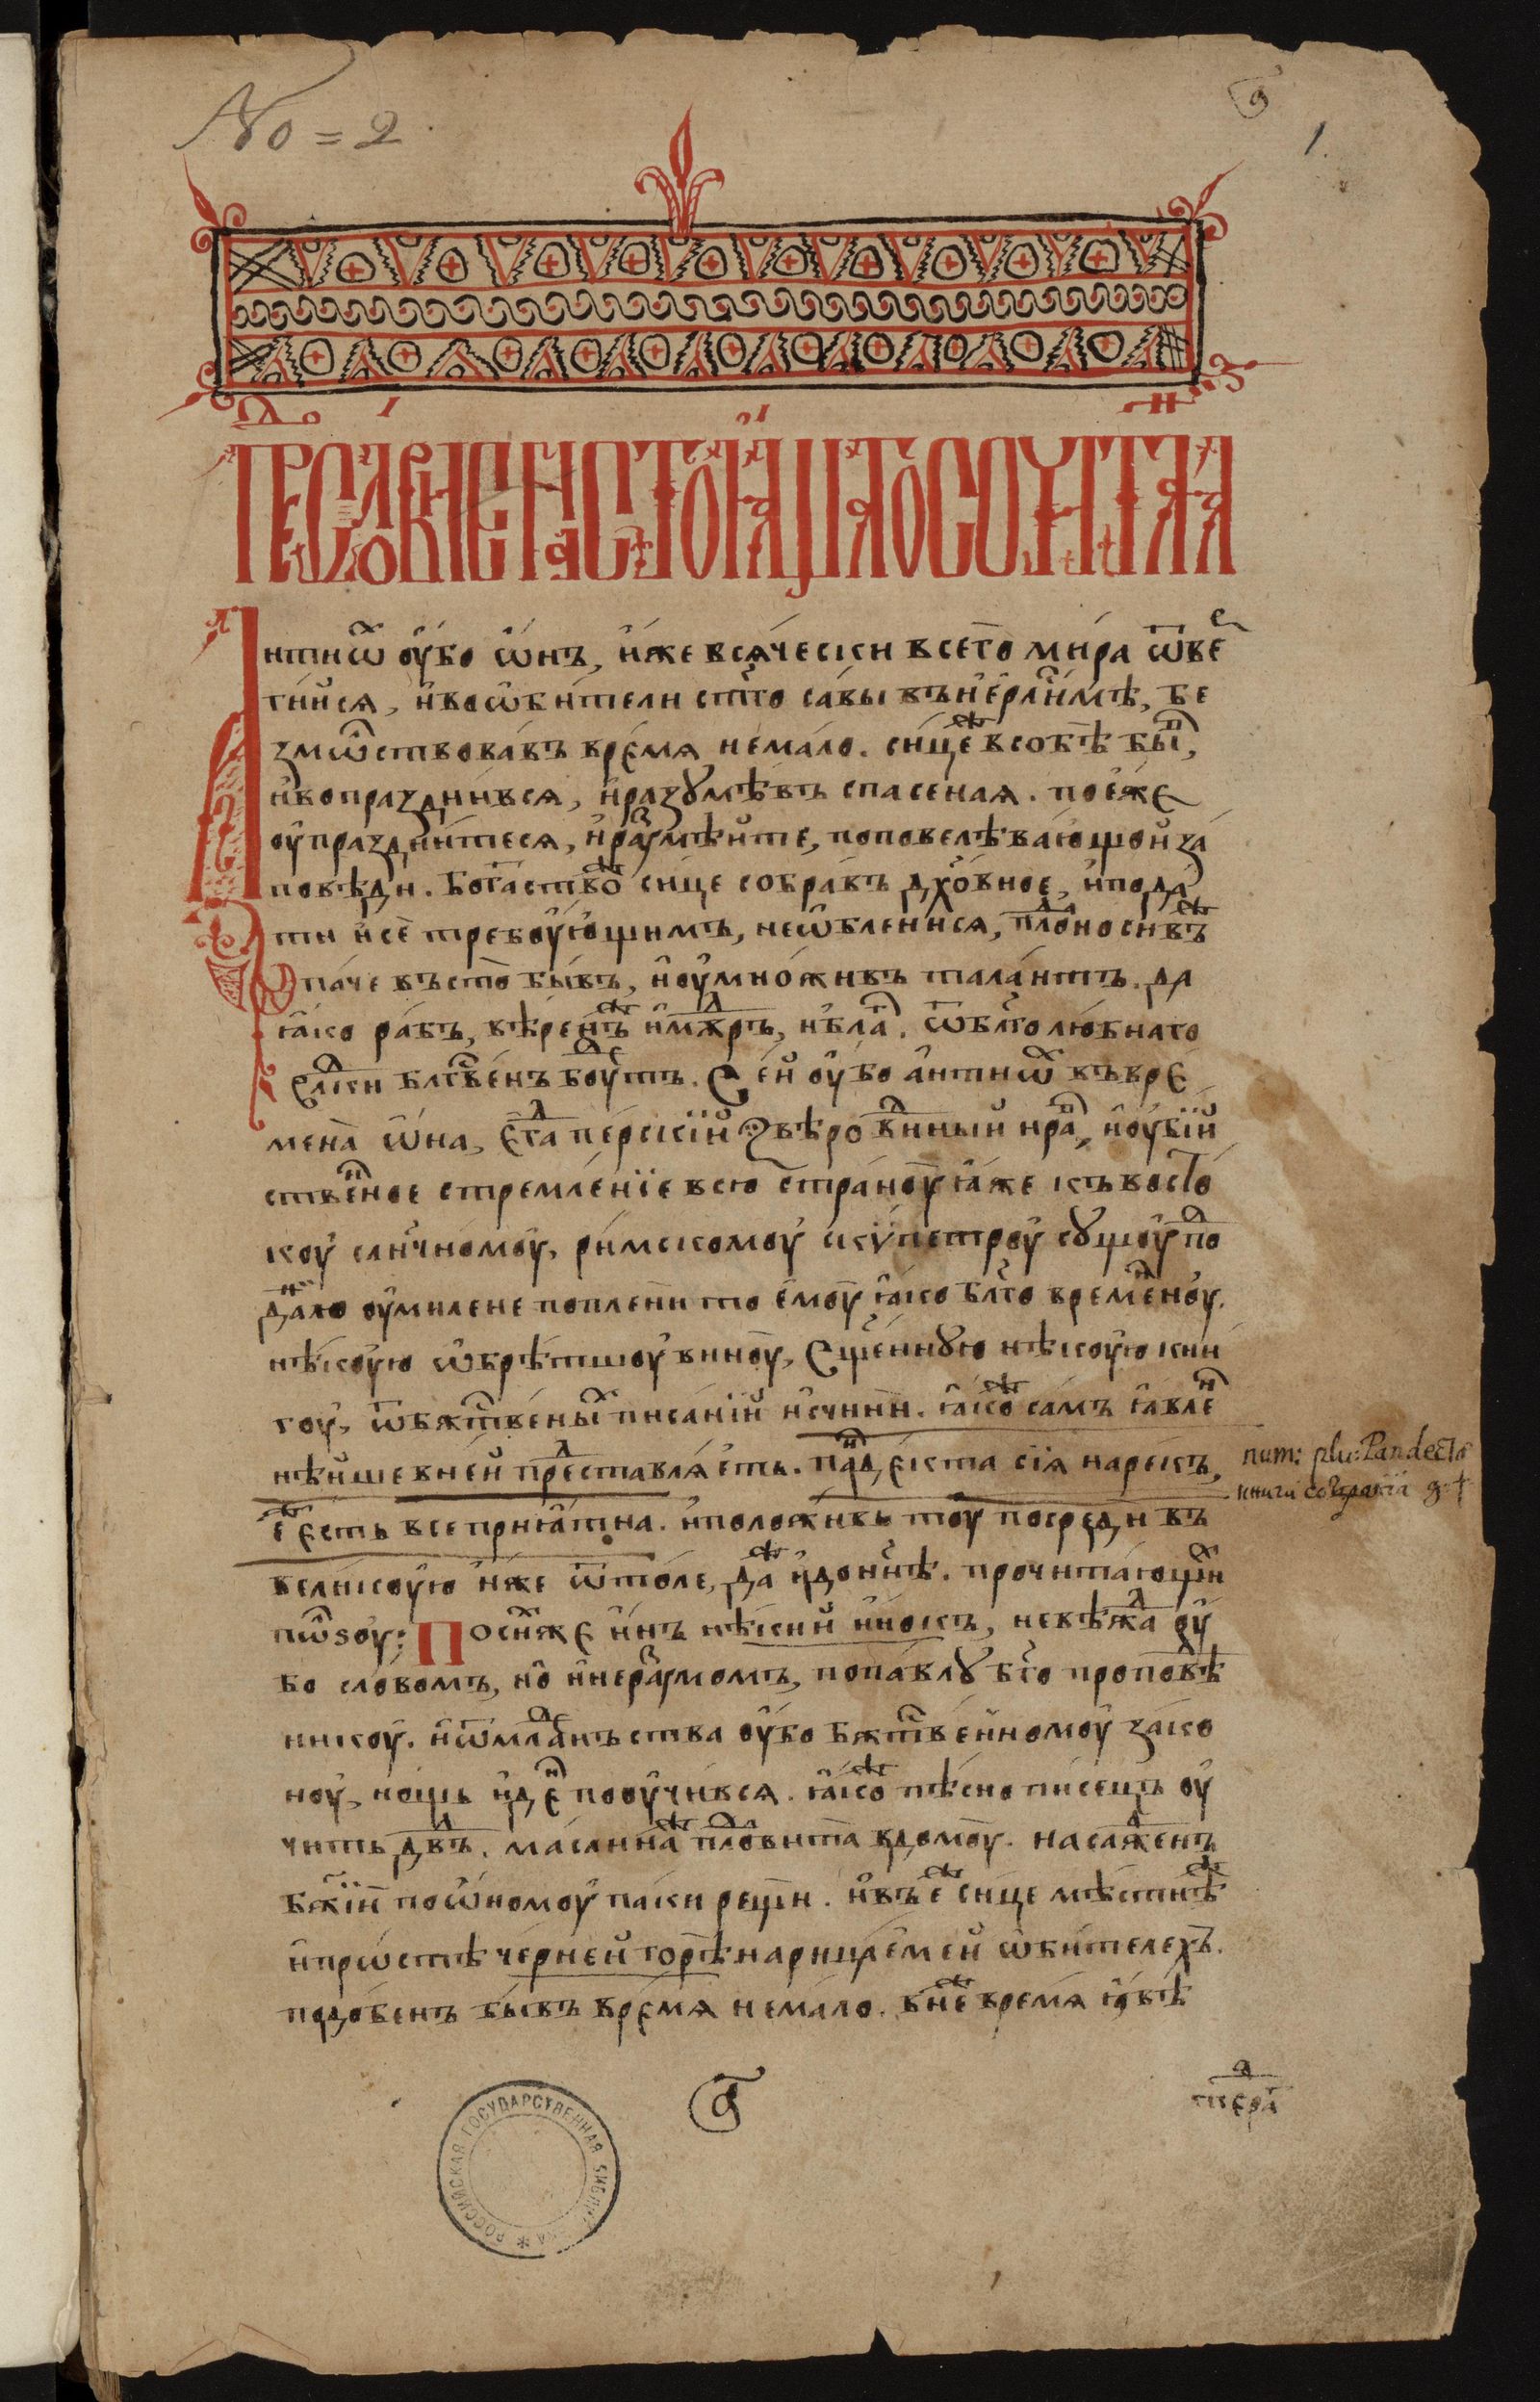 No = 2
1.
Пре̾дсловїе настоꙗщаго соуптаанїа
Антиѡⷯ оубо ѡнъ, иже всѧчески всего мира ѿве
ргиисѧ, ивоѡбители ст҃го савы въиерⷭ҇лимѣ, бе
змѡлствовавъ времѧ немало. сицеⷤ всобѣ быⷭ,
ивопразднивсѧ, иразꙋмѣвъ спасенаѧ. поеже
оупразднитесѧ, иразꙋмѣите, поповелѣвающои за
повѣди. богатствоⷤ сице собравъ дх҃овное, иподаⷮ
ти исе требоующимъ, неѡбленисѧ, плоⷣносивъⷤ
паче въсто бывъ, иоумноживъ талантъ. да
ꙗко рабъ, вѣренъⷤ имⷣръ, ꙗвлⷭ. ѿбл҃голюбнаго
влⷣки блг҃венъ боуⷣтъ. Сеи оубо антиѡⷯ въвре
мена ѡна, егⷣа перскїи ꙁвѣровиⷣныи нраⷡ, иоубїи
ственⷩое стремленїе всю страноу ꙗже къвосто
коу сличномоу, римскомоу скѵпетроу сꙋщоу поⷣ
даⷩою оумилене поплени то емоу ꙗко бл҃го временⷩоу.
нѣкоую ѡбрѣтшоу виноу, Сщ҃еннꙋю нѣкоую кни
гоу, ѿбжⷭ҇твеныⷯ писанїи исчини. ꙗкоⷤ самъ ꙗвлеⷩ
нѣише внеи преⷣставлѧеть. паⷩдекта сїѧ нарекъ,
еⷤ есть всеприꙗтна. иположивъ тоу посреди въ
великоую иже ѿтоле, даⷤ идоннѣ. прочитающиⷯ
пѡлѕоу: Посиⷯже инъ нѣкии инокъ, невѣжⷣа оу
бо словомъ, но инеразꙋмомъ, попавлꙋ бг҃о проповѣⷣ
никоу. иѿмлаⷣнъства оубо бжⷭ҇твенномоу зако
ноу, нощь идеⷩ пооучивсѧ. ꙗкоⷤ пѣсно писецъ оу
чить дв҃дъ. маслинаⷤ плоⷣвита вдомоу. насажⷣенъ
бж҃їи поѡномоу паки рещи. ивъ еⷤ сице мѣстнѣⷤ
ипрѡстѣ чернеи горѣ нарицаемеи ѡбителехъ.
подобенъ бывъ времѧ немало. внеⷤ времѧ ꙗвѣ
num: plu: Pandecta
книги собранїи
РОССИЙСКАЯ ГОСУДАРСТВЕННАЯ БИБЛИОТЕКА